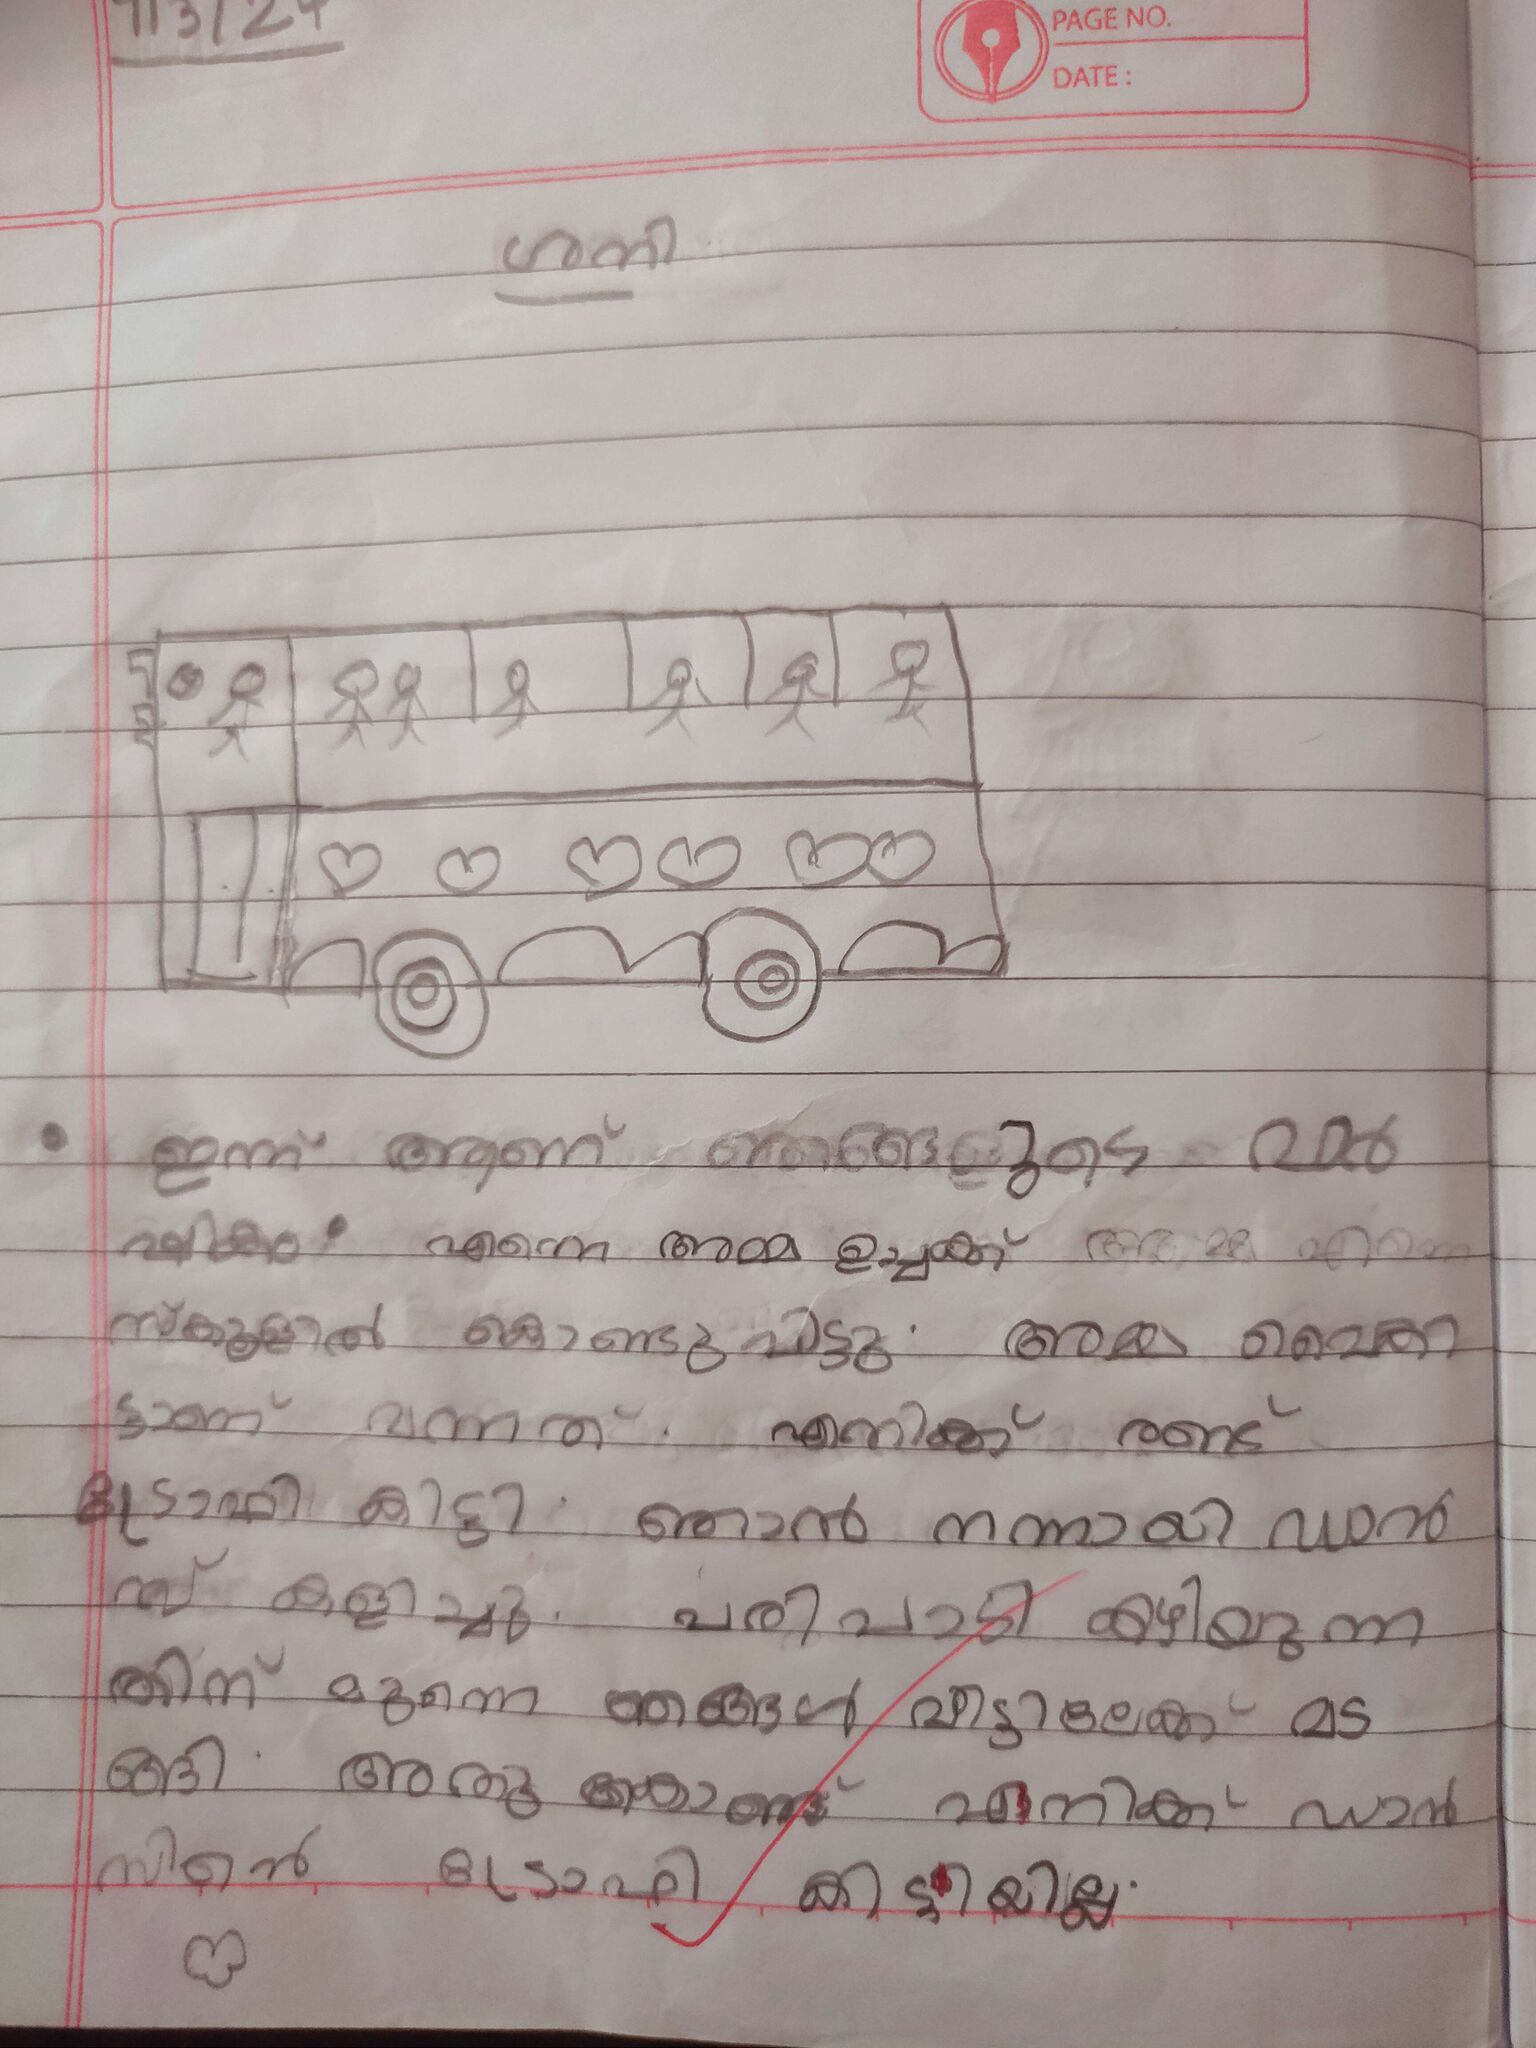 PAGE NO.
DATE :
ശനി
ഇന്ന് ആണ് ഞങ്ങളുടെ വാർ
ഷികം. എന്നെ അമ്മ ഉച്ചക്ക്
സ്കൂളിൽ കൊണ്ടുവിട്ടു. അമ്മ വൈകി
ട്ടാണ് വന്നത്. എനിക്ക് രണ്ട്
ട്രോഫി കിട്ടി. ഞാൻ നന്നായി ഡാൻ
സ് കളിച്ചു. പരിപാടി കഴിയുന്ന
തിന് മുന്നെ ഞങ്ങൾ വീട്ടിലേക്ക് മട
ങ്ങി. അതു കൊണ്ട് എനിക്ക് ഡാൻ
സിൻെ ട്രോഫി കിട്ടിയില്ല.